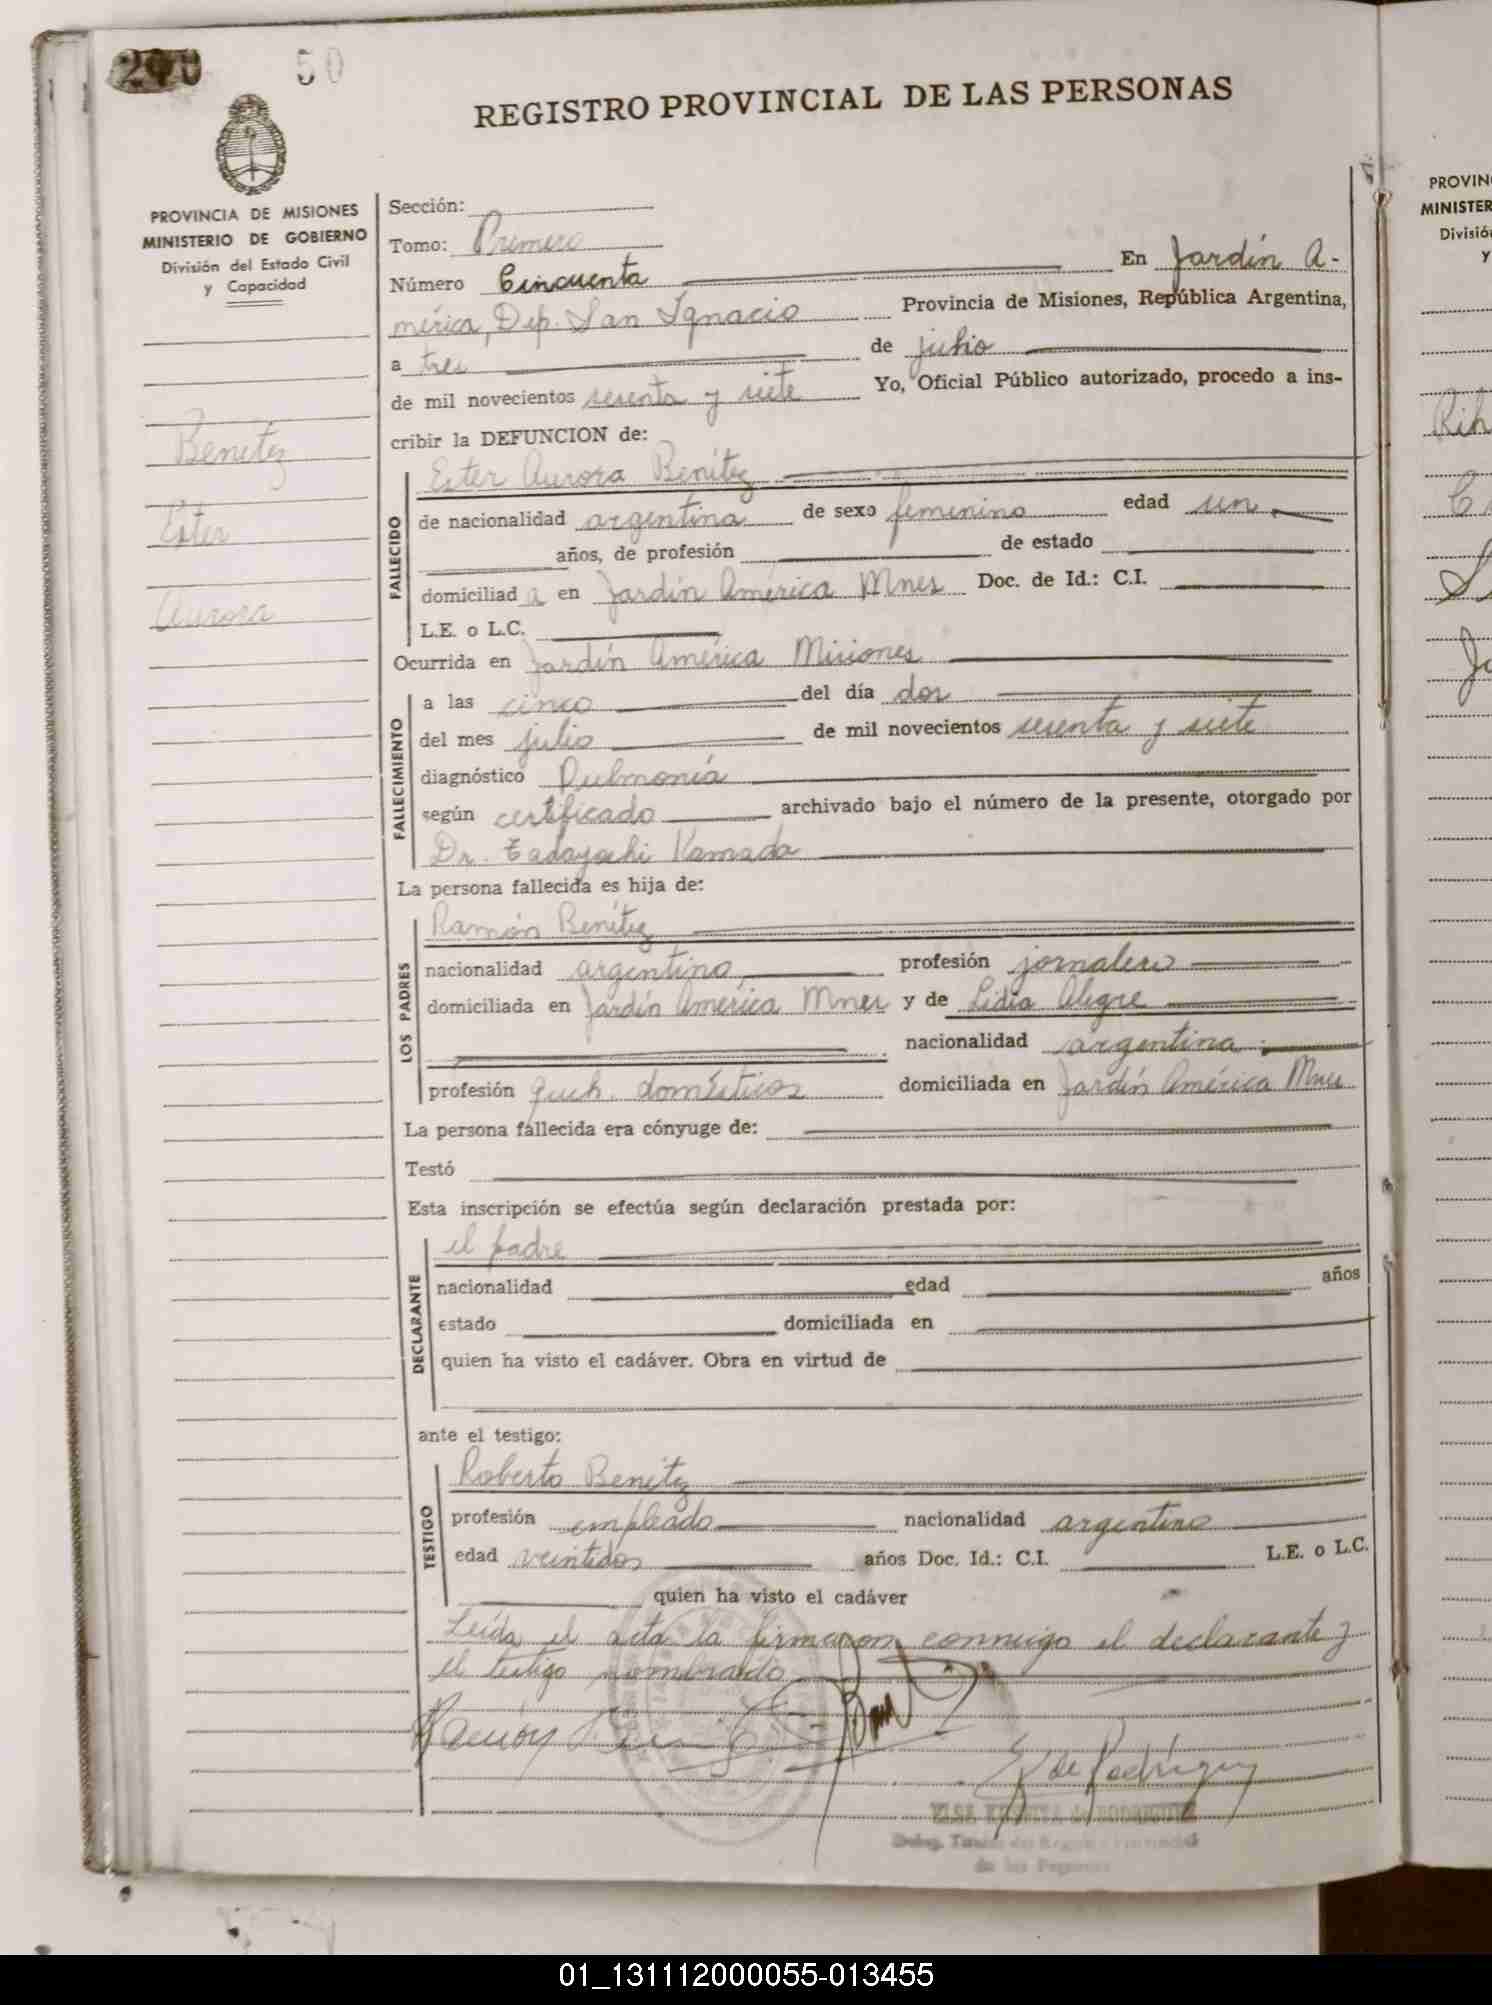 50
REGISTRO PROVINCIAL DE LAS PERSONAS
PROVINCIA DE MISIONES
MINISTERIO DE GOBIERNO
División del Estado Civil
y Capacidad
Benitez
Ester
Aurora
Sección:
Tomo: Primero
Número Cincuenta En Jardín A-
mérica, Dep. San Ignacio Provincia de Misiones, República Argentina,
a tres de julio
de mil novecientos sesenta y siete Yo, Oficial Público autorizado, procedo a ins-
cribir la DEFUNCION de:
FALLECIDO
Ester Aurora Benítez
de nacionalidad argentina de sexo femenino edad un
años, de profesión de estado
domiciliad a en Jardín América Mnes Doc. de Id.: C.I.
L.E. o L.C.
Ocurrida en Jardín América Misiones
FALLECIMIENTO
a las cinco del día dos
del mes julio de mil novecientos sesenta y siete
diagnóstico Pulmonía
según certificado archivado bajo el número de la presente, otorgado por
Dr. Tadayoshi Kamada
La persona fallecida es hija de:
LOS PADRES
Ramón Benítez
nacionalidad argentino profesión jornalero
domiciliada en Jardín América Mnes y de Lidia Alegre
nacionalidad argentina
profesión queh. domésticos domiciliada en Jardín América Mnes
La persona fallecida era cónyuge de:
Testó
Esta inscripción se efectúa según declaración prestada por:
DECLARANTE
el padre
nacionalidad edad años
estado domiciliada en
quien ha visto el cadáver. Obra en virtud de
ante el testigo:
TESTIGO
Roberto Benítez
profesión empleado nacionalidad argentino
edad veintidos años Doc. Id.: C.I. L.E. o L.C.
quien ha visto el cadáver
Leída el acta la firmaron conmigo el declarante y
el testigo nombrado
Ramón Benitez
E. de Rodriguez
de las Personas
PROVIN
MINISTER
Divisió
y
01_131112000055-013455